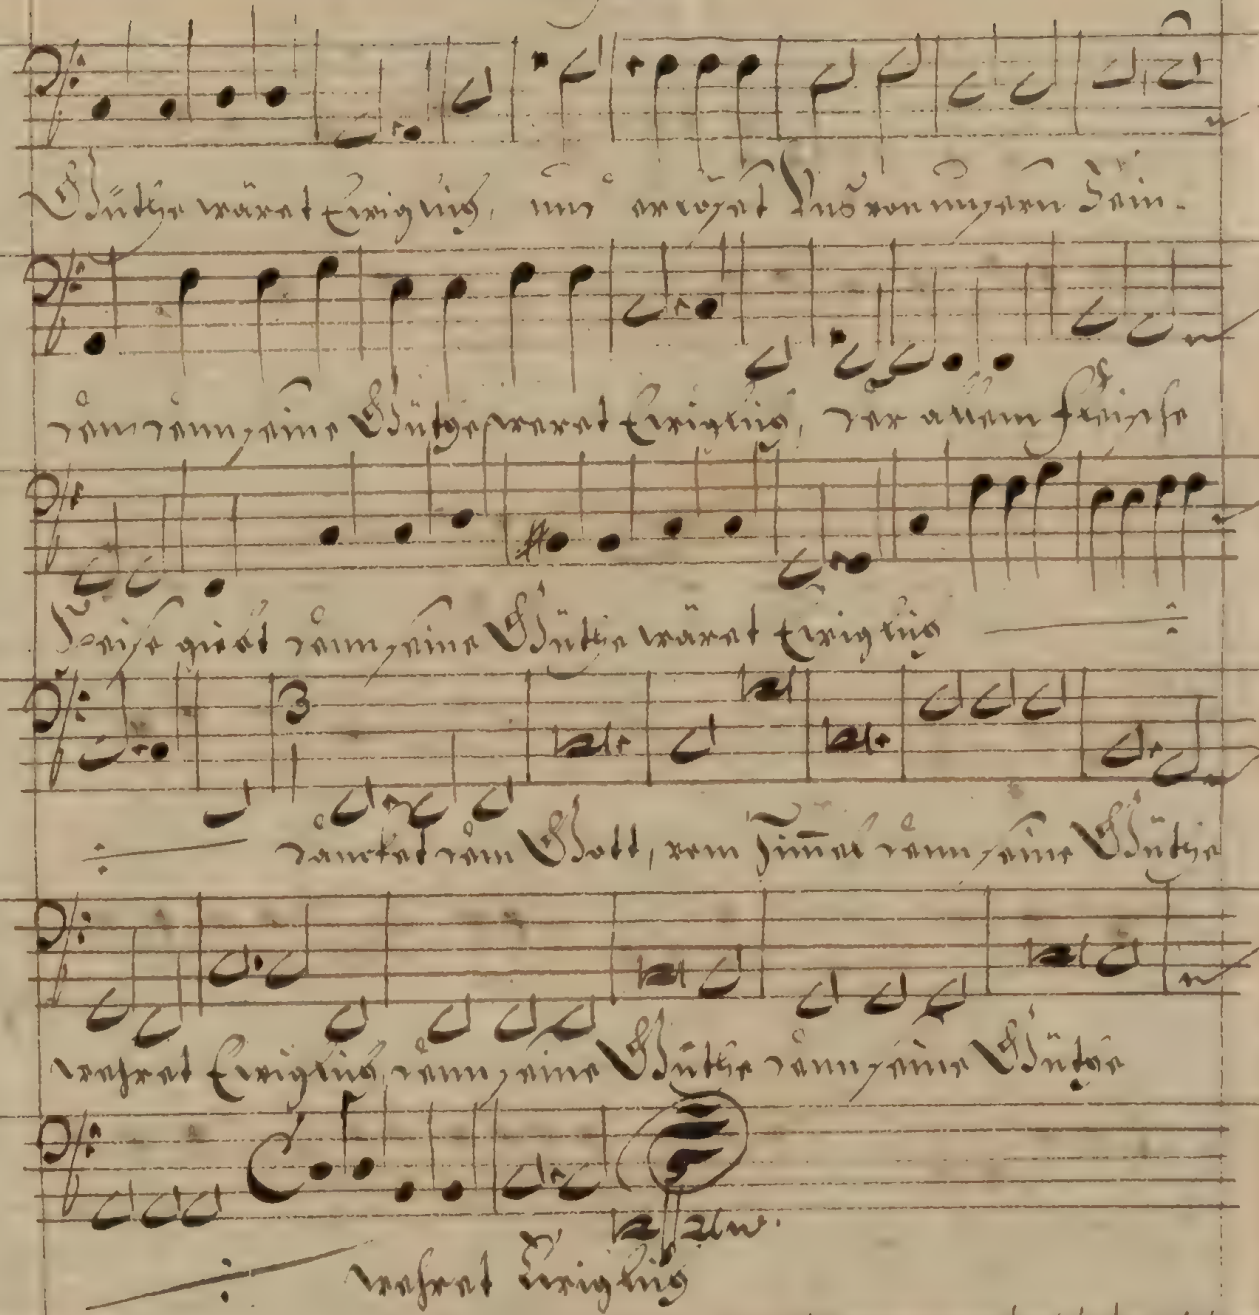 Güthe wäret Ewiglich, und erlöset Uns von unsern Fein-
den denn seine Gütge weret Ewiglich, der allem fleische
Speise giebt denn seine Güthe wäret Ewiglich
3
dancket dem Gott, vom Himel denn seine Güthe
wehret Ewiglich, denn seine Güthe denn seine Gütge
wehret Ewiglich